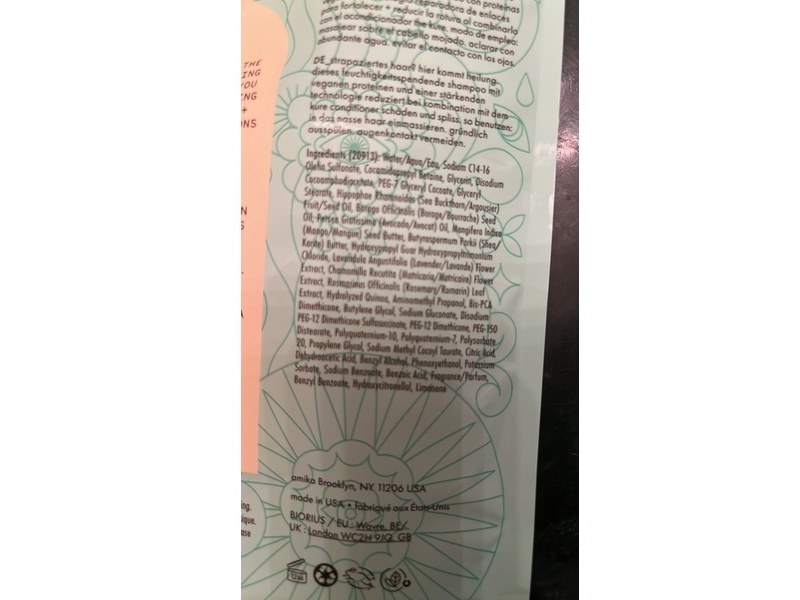 THE
ING
YOU
NG
+
ONS
N
S
A
ng.
ique.
ase
reparadora de enlaces
para fortalecer + reducir la rotura al combinarlo
con el acondicionador the kure. modo de empleo:
masajear sobre el cabello mojado. aclarar con
abundante agua. evitar el contacto con los ojos.
DE_strapaziertes haar? hier kommt heilung.
dieses feuchtigkeitsspendende shampoo mit
veganen proteinen und einer stärkenden
technologie reduziert bei kombination mit dem
kure conditioner schäden und spliss. so benutzen:
in das nasse haar einmassieren. gründlich
ausspülen. augenkontakt vermeiden.
Ingredients (20913): Water/Aqua/Eau, Sodium C14-16
Olefin Sulfonate, Cocamidopropyl Betaine, Glycerin, Disodium
Cocoamphodiacetate, PEG-7 Glyceryl Cocoate, Glyceryl
Stearate, Hippophae Rhamnoides (Sea Buckthorn/Argousier)
Fruit/Seed Oil, Borago Officinalis (Borage/Bourrache) Seed
Oil, Persea Gratissima (Avocado/Avocat) Oil, Mangifera Indica
(Mango/Mangue) Seed Butter, Butyrospermum Parkii (Shea/
Karite) Butter, Hydroxypropyl Guar Hydroxypropyltrimonium
Chloride, Lavandula Angustifolia (Lavender/Lavande) Flower
Extract, Chamomilla Recutita (Matricaria/Matricaire) Flower
Extract, Rosmarinus Officinalis (Rosemary/Romarin) Leaf
Extract, Hydrolyzed Quinoa, Aminomethyl Propanol, Bis-PCA
Dimethicone, Butylene Glycol, Sodium Gluconate, Disodium
PEG-12 Dimethicone Sulfosuccinate, PEG-12 Dimethicone, PEG-150
Distearate, Polyquaternium-10, Polyquaternium-7, Polysorbate
20, Propylene Glycol, Sodium Methyl Cocoyl Taurate, Citric Acid,
Dehydroacetic Acid, Benzyl Alcohol, Phenoxyethanol, Potassium
Sorbate, Sodium Benzoate, Benzoic Acid, Fragrance/Parfum,
Benzyl Benzoate, Hydroxycitronellal, Limonene
amika Brooklyn, NY 11206 USA
made in USA • fabriqué aux États-Unis
BIORIUS / EU : Wavre, BE/
UK : London WC2H 9JQ, GB
12M